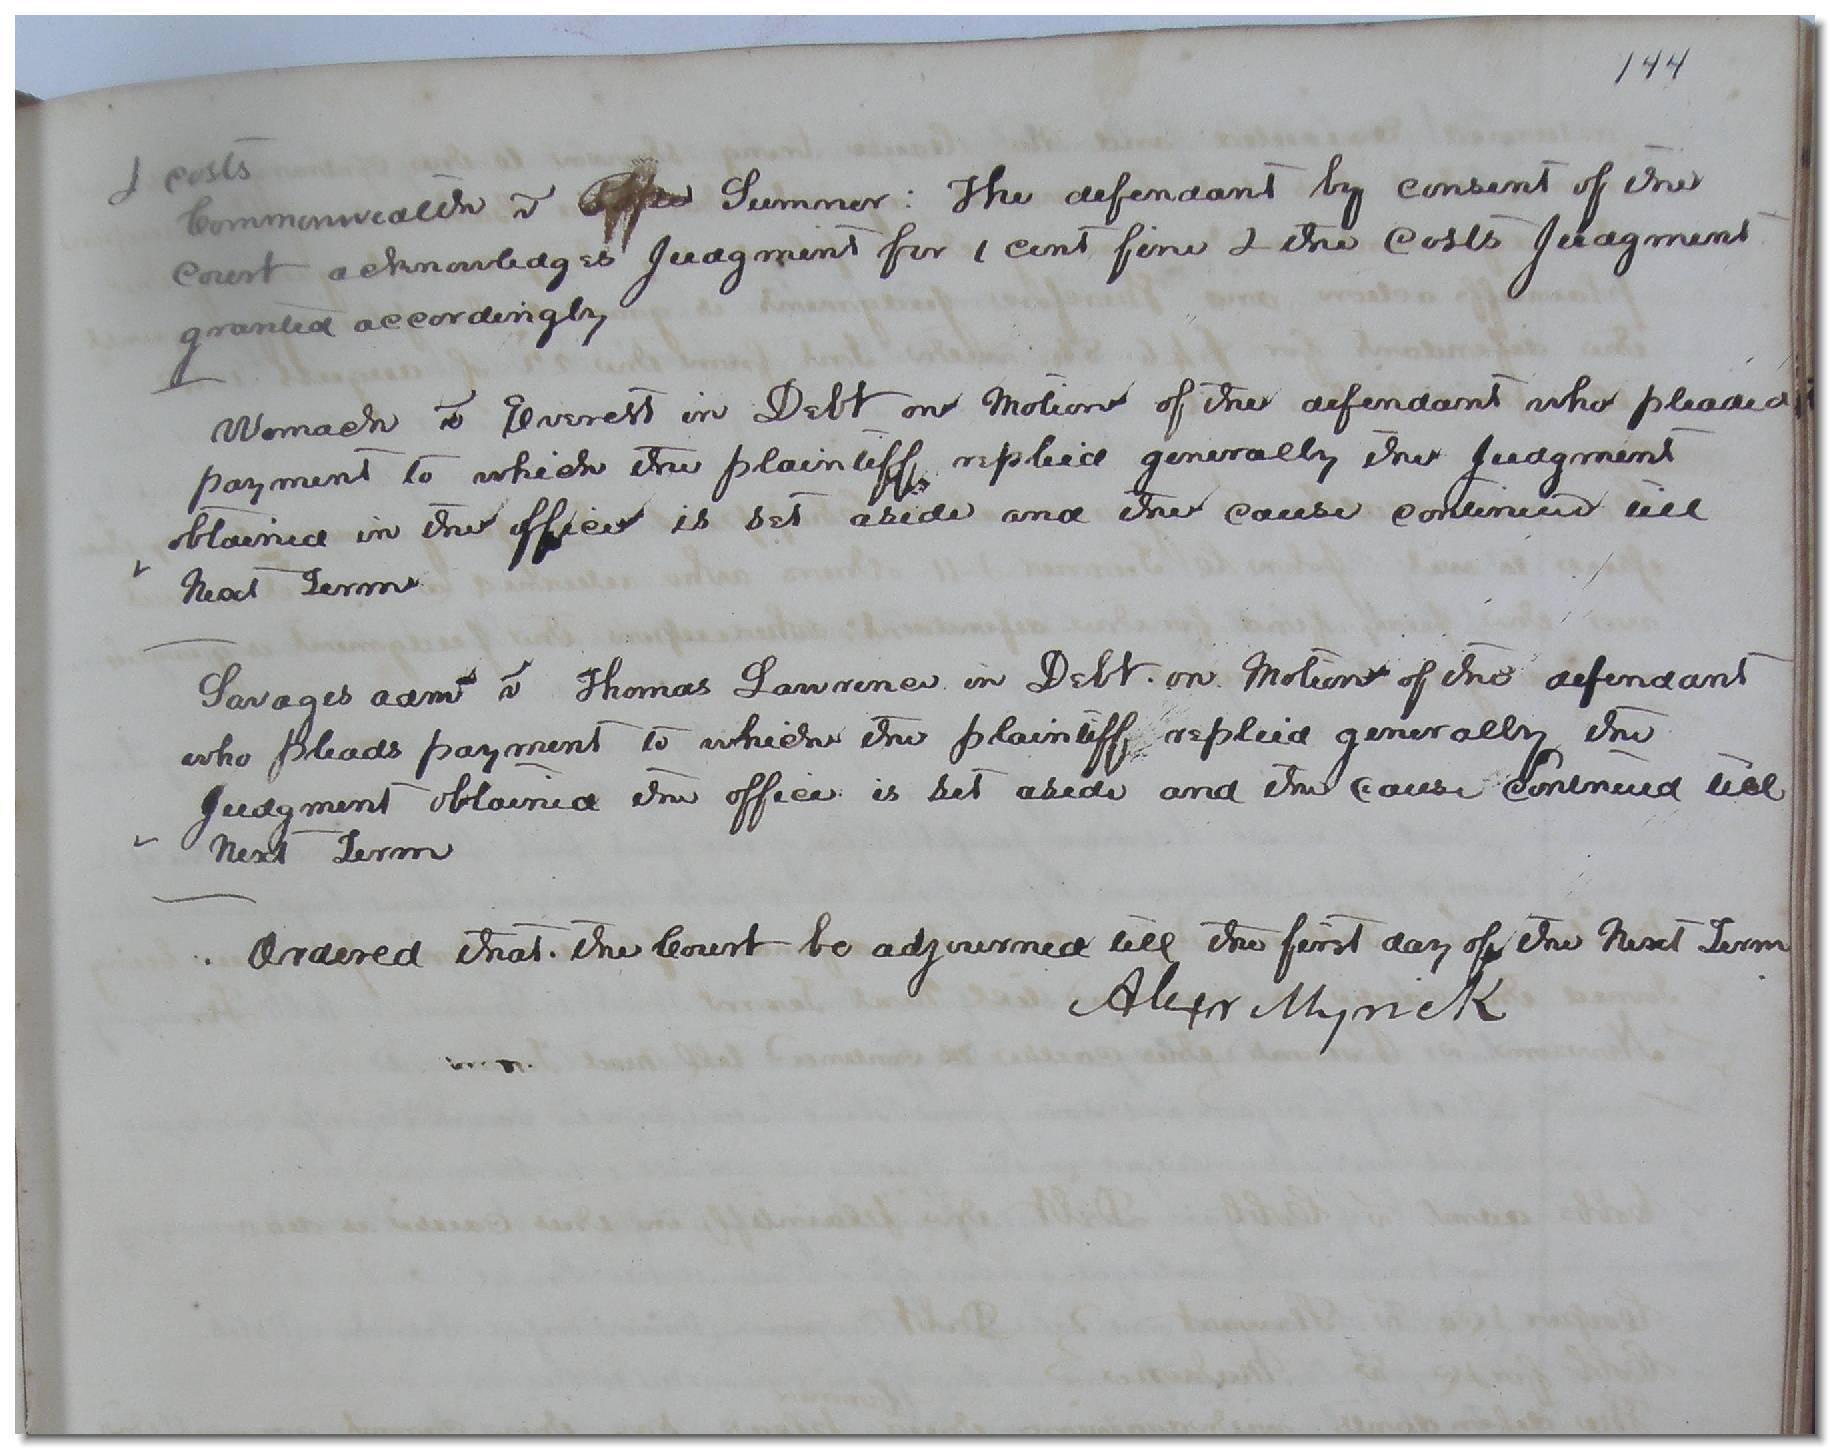 144
& costs
Commonwealth v Sumner: The defendant by consent of the
Court acknowledges Judgment for 1 cent fine & the Costs Judgment
granted accordingly
Womack v Everett in Debt on Motion of the defendant who pleaded
payment to which the plaintiff replied generally the Judgment
obtained in the office is set aside and the cause continued till
Next Term
Savages admr v Thomas Lawrence in Debt. on Motion of the defendant
who pleads payment to which the plaintiff replied generally the
Judgment obtained the office is set aside and the cause Continued till
Next Term
Ordered that the Court be adjourned till the first day of the Next Term
Alexr Myrick